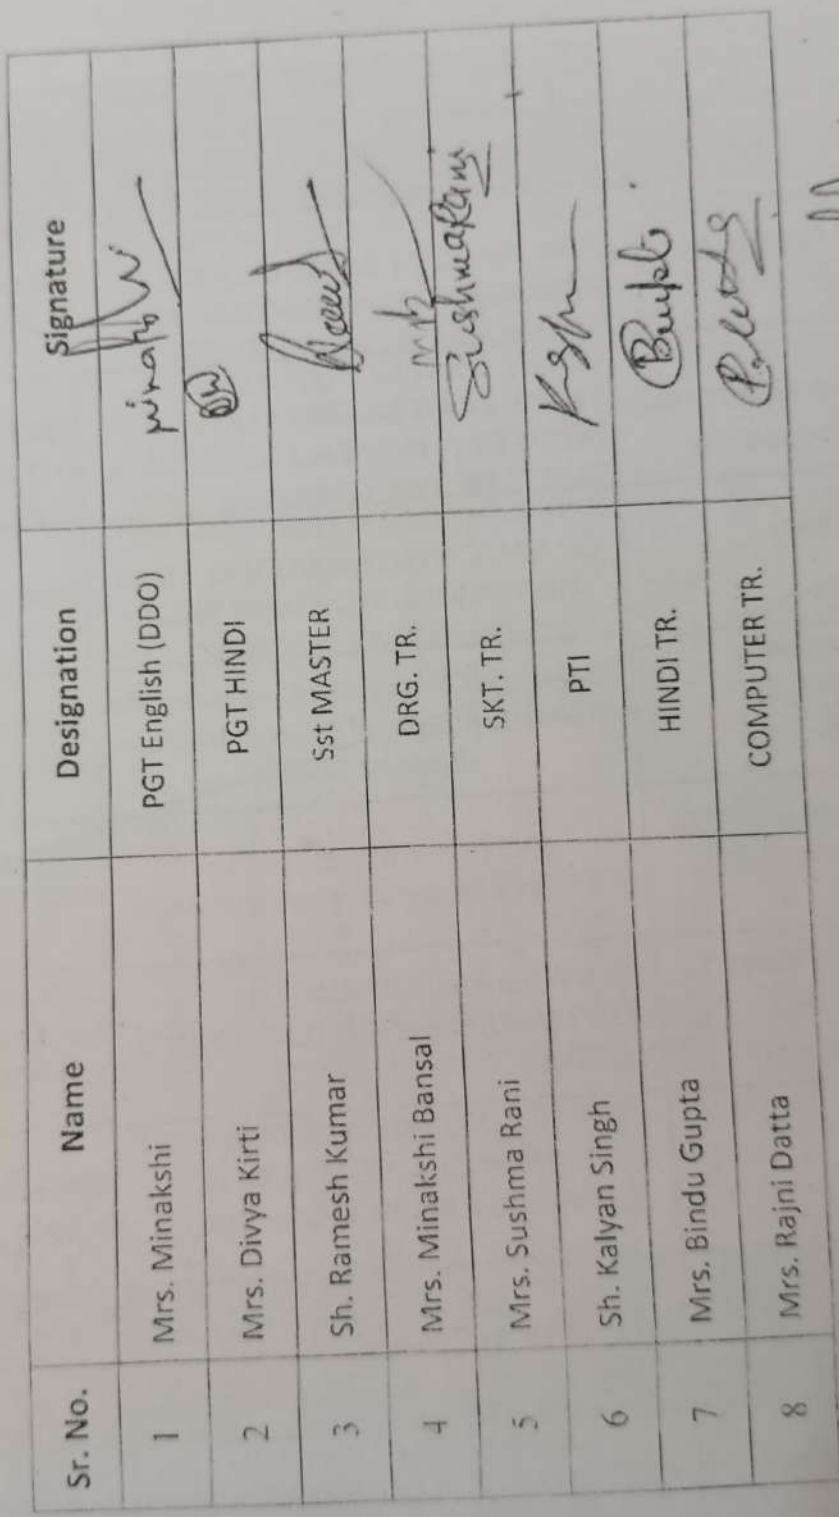 Sr. No. Name Designation Signature
1 Mrs. Minakshi PGT English (DDO)
2 Mrs. Divya Kirti PGT HINDI
3 Sh. Ramesh Kumar Sst MASTER
4 Mrs. Minakshi Bansal DRG. TR.
5 Mrs. Sushma Rani SKT. TR. SushmaRani
6 Sh. Kalyan Singh PTI
7 Mrs. Bindu Gupta HINDI TR.
8 Mrs. Rajni Datta COMPUTER TR.